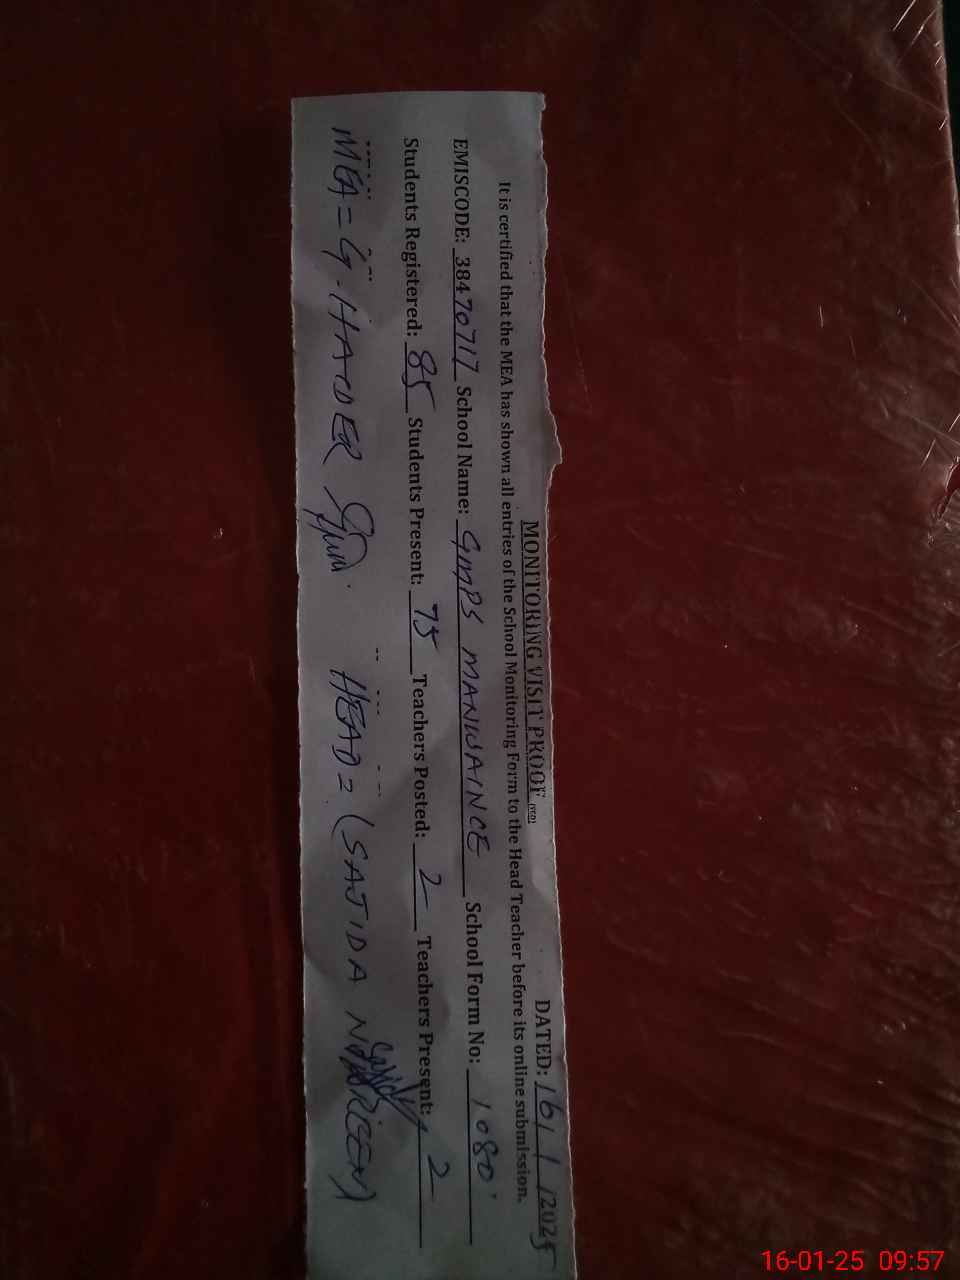 MONITORING VISIT PROOF
DATED: 16/1/2025
It is certified that the MEA has shown all entries of the School Monitoring Form to the Head Teacher before its online submission.
EMISCODE: 38470717 School Name: GMPS MANWAINCE School Form No: 1080
Students Registered: 85 Students Present: 75 Teachers Posted: 2 Teachers Present: 2
MEA = G. HAIDER HEAD = (SAJIDA
16-01-25 09:57